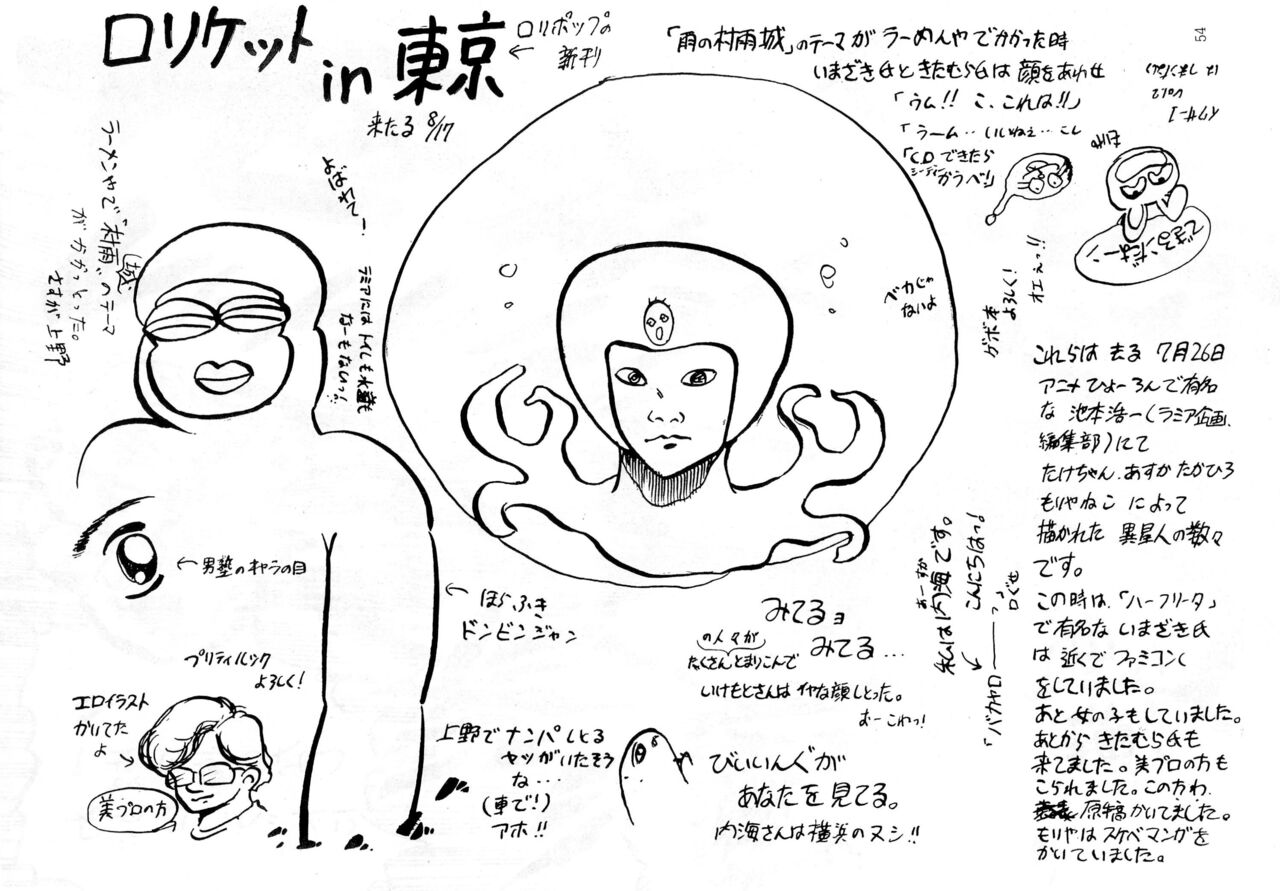 ロリケット
in 東京
← ロリポップの
新刊
来たる 8/17
「雨の村雨城」のテーマが ラーめんやでかかった時
いまざき氏ときたむら氏は 顔をあわせ
「ウム!! こ、これは!!」
「ラーム・・いいねぇ・・こし
「CDできたら
シーディー
かうべ!」
54
できるンだなぁーン
オエぇっ!!
ゲボ本
よろしく!
ベカじゃ
ないよ
よばれてー
ラーメンやで“村雨城”のテーマ
がかかっとった。
さすが上野
ラミアには トイレも水道も
なーもないっ!
←男塾のキャラの目
← ほらふき
ドンビンジャン
プリティルック
よろしく!
エロイラスト
かいてた
よ
美プロの方
上野でナンパしとる
ヤツがいたそう
な・・・
(車で!)
アホ!!
みてるョ
みてる...
の人々が
たくさんとまりこんで
いけもとさんはイヤな顔しとった。
おーこわっ!
びぃぃんぐが
あなたを見てる。
内海さんは横浜のヌシ!!
あーすか
私は内海です。
こんにちはっ!
「バカヤロ――っ」
ロぐせ
これらは 去る 7月26日
アニメひょーろんで有名
な 池本浩一(ラミア企画、
編集部)にて
たけちゃん、あすかたかひろ
もりやねこ によって
描かれた 異星人の数々
です。
この時は、「ハーフリータ」
で有名な いまざき氏
は 近くで ファミコン(
をしていました。
あと女の子もしていました。
あとから きたむら氏も
来てました。美プロの方も
こられました。この方わ、
原稿かいてました。
もりやはスケベマンガを
かいていました。